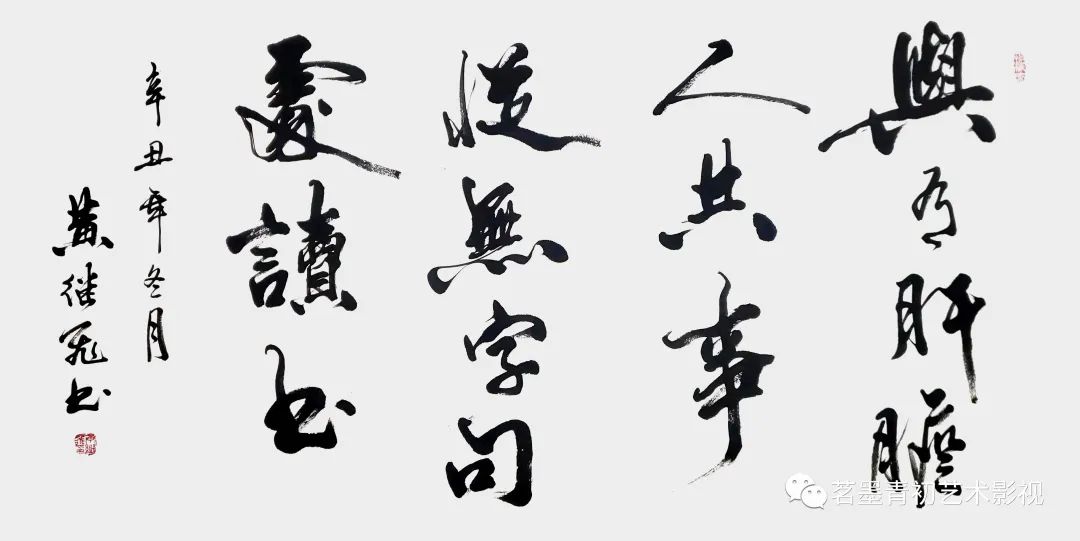 與有肝膽
人共事
從無字句
處讀書
辛丑年冬月
黄继飛书
茗墨青初艺术影视